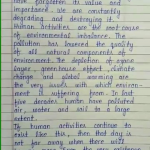 have forgotten its value and
importance. We are constantly
degrading and destroying it.
Human activities are the root cause
of environmental imbalance. The
pollution has lowered the quality
of all natural components of
environment. The depletion of ozone
layer, greenhouse effect, climate
change and global warming are
the very issues with which environ-
ment is suffering from. In last
five decades human have polluted
air, water and soil to a large
extent.
If human activities continue to
exist like this, then that day is
not far away when there will